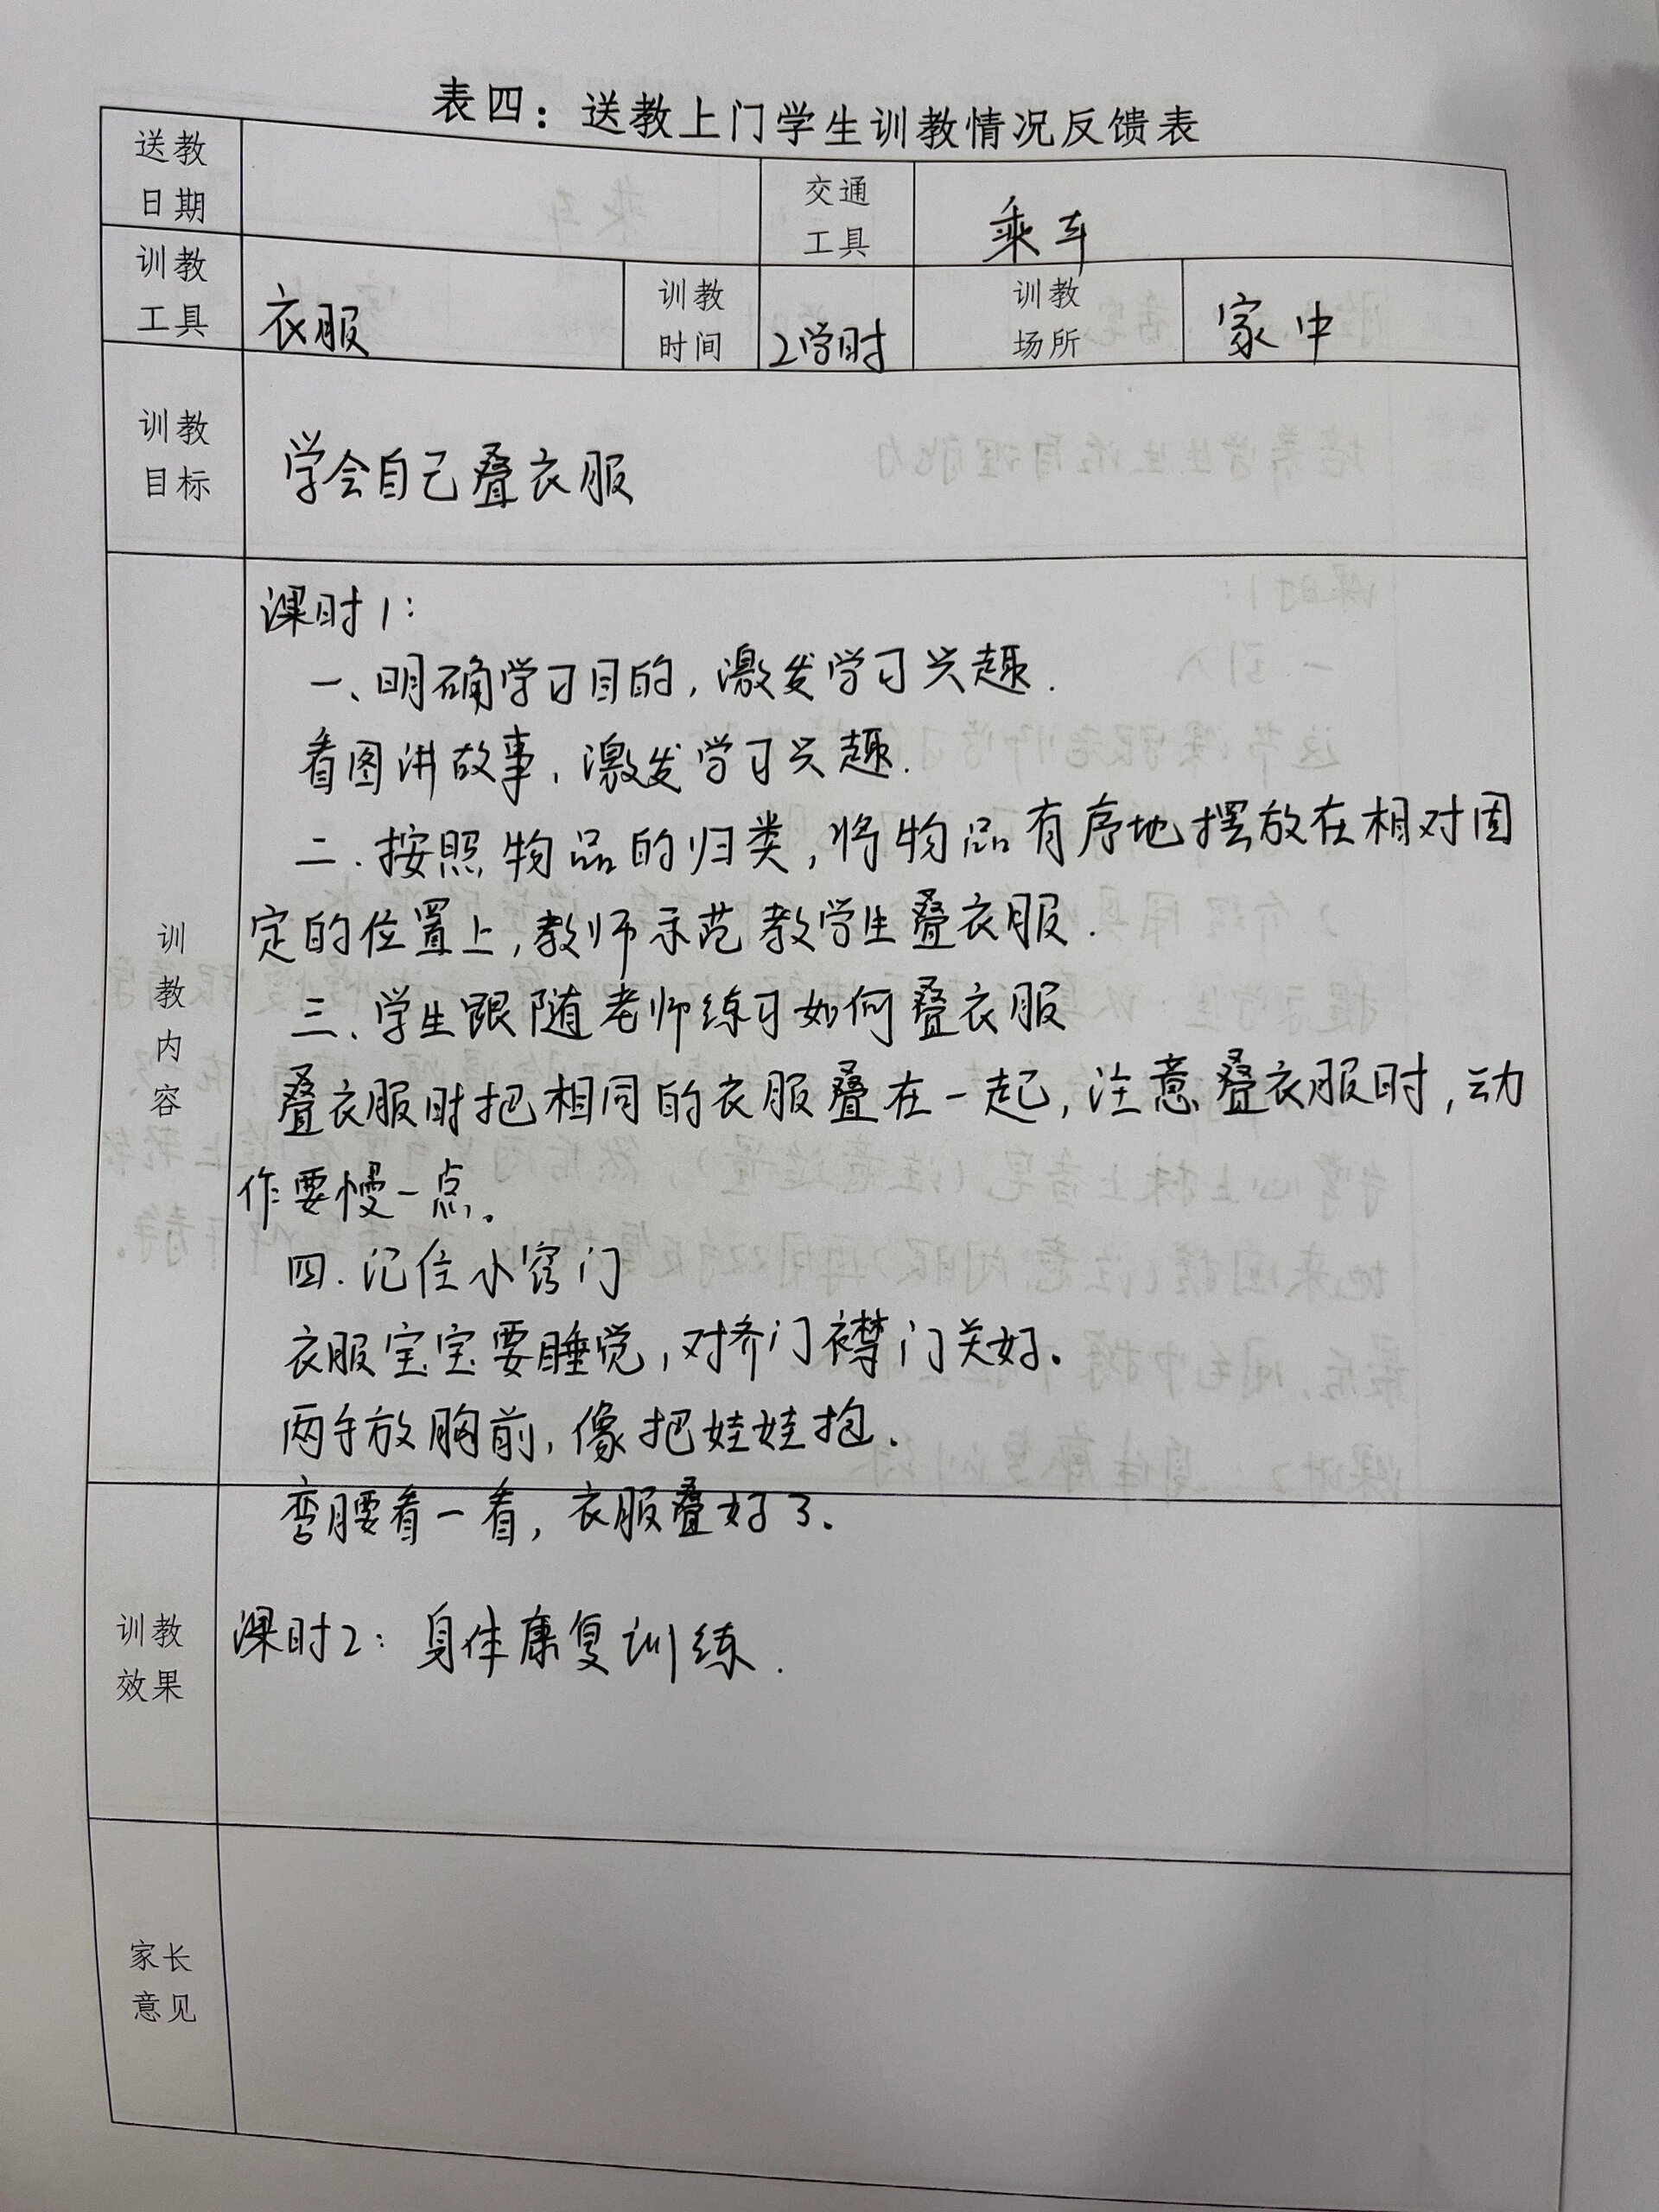 表四：送教上门学生训教情况反馈表
送教日期
交通工具
乘车
训教工具
衣服
训教时间
2学时
训教场所
家中
训教目标
学会自己叠衣服
训教内容
课时1:
一、明确学习目的,激发学习兴趣.
看图讲故事,激发学习兴趣.
二.按照物品的归类,将物品有序地摆放在相对固
定的位置上,教师示范教学生叠衣服.
三、学生跟随老师练习如何叠衣服
叠衣服时把相同的衣服叠在一起,注意叠衣服时,动
作要慢一点。
四.记住小窍门
衣服宝宝要睡觉,对齐门襟门关好。
两手放胸前,像把娃娃抱.
弯腰看一看,衣服叠好了.
训教效果
课时2:身体康复训练.
家长意见